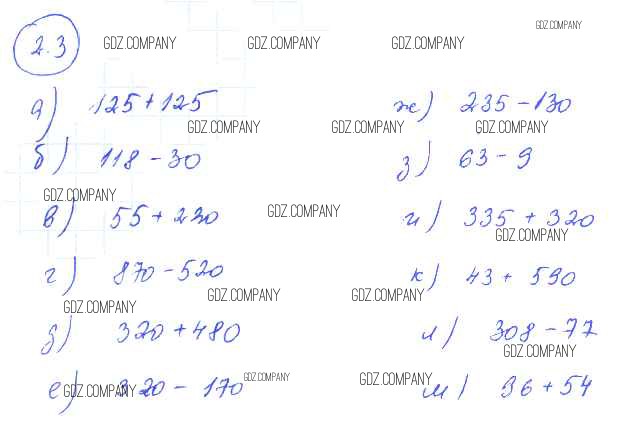 2.3
GDZ.COMPANY GDZ.COMPANY GDZ.COMPANY GDZ.COMPANY
а) 125 + 125 ж) 235 - 130
GDZ.COMPANY GDZ.COMPANY GDZ.COMPANY
б) 118 - 30 з) 63 - 9
GDZ.COMPANY GDZ.COMPANY
в) 55 + 230 и) 335 + 320
GDZ.COMPANY
г) 870 - 520 к) 43 + 590
GDZ.COMPANY GDZ.COMPANY GDZ.COMPANY
д) 320 + 480 л) 308 - 77
GDZ.COMPANY
е) 320 - 170 м) 36 + 54
GDZ.COMPANY GDZ.COMPANY GDZ.COMPANY